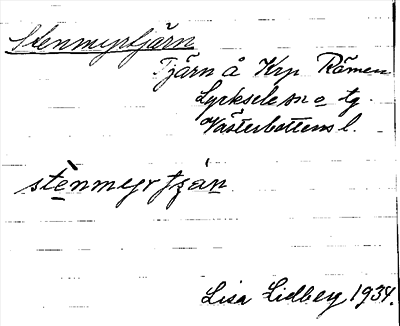 Stenmyrtjärn
Tjärn å Krp Råmen
Lycksele sn o tg.
Västerbottens l.
stènmyrtján
Lisa Lidberg 1934.